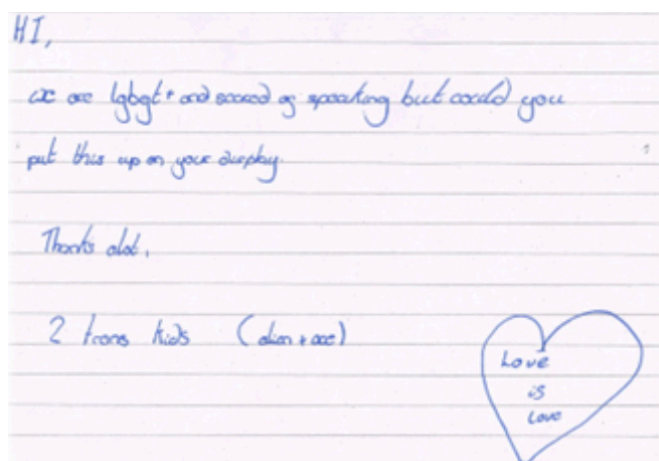 HI,
we are lgbqt+ and scared of speaking but could you
put this up on your display.
Thanks alot,
2 trans kids (+ ace)
Love
is
Love